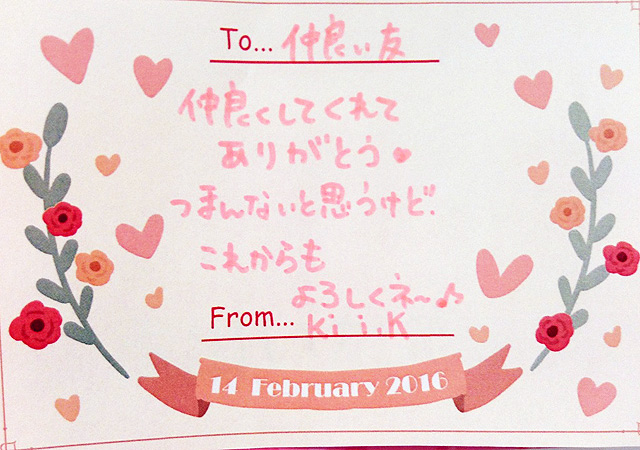 To... 仲良い友
仲良くしてくれて
ありがとう♥
つまんないと思うけど、
これからも
よろしくネ〜♪
From... Ki i.K
14 February 2016